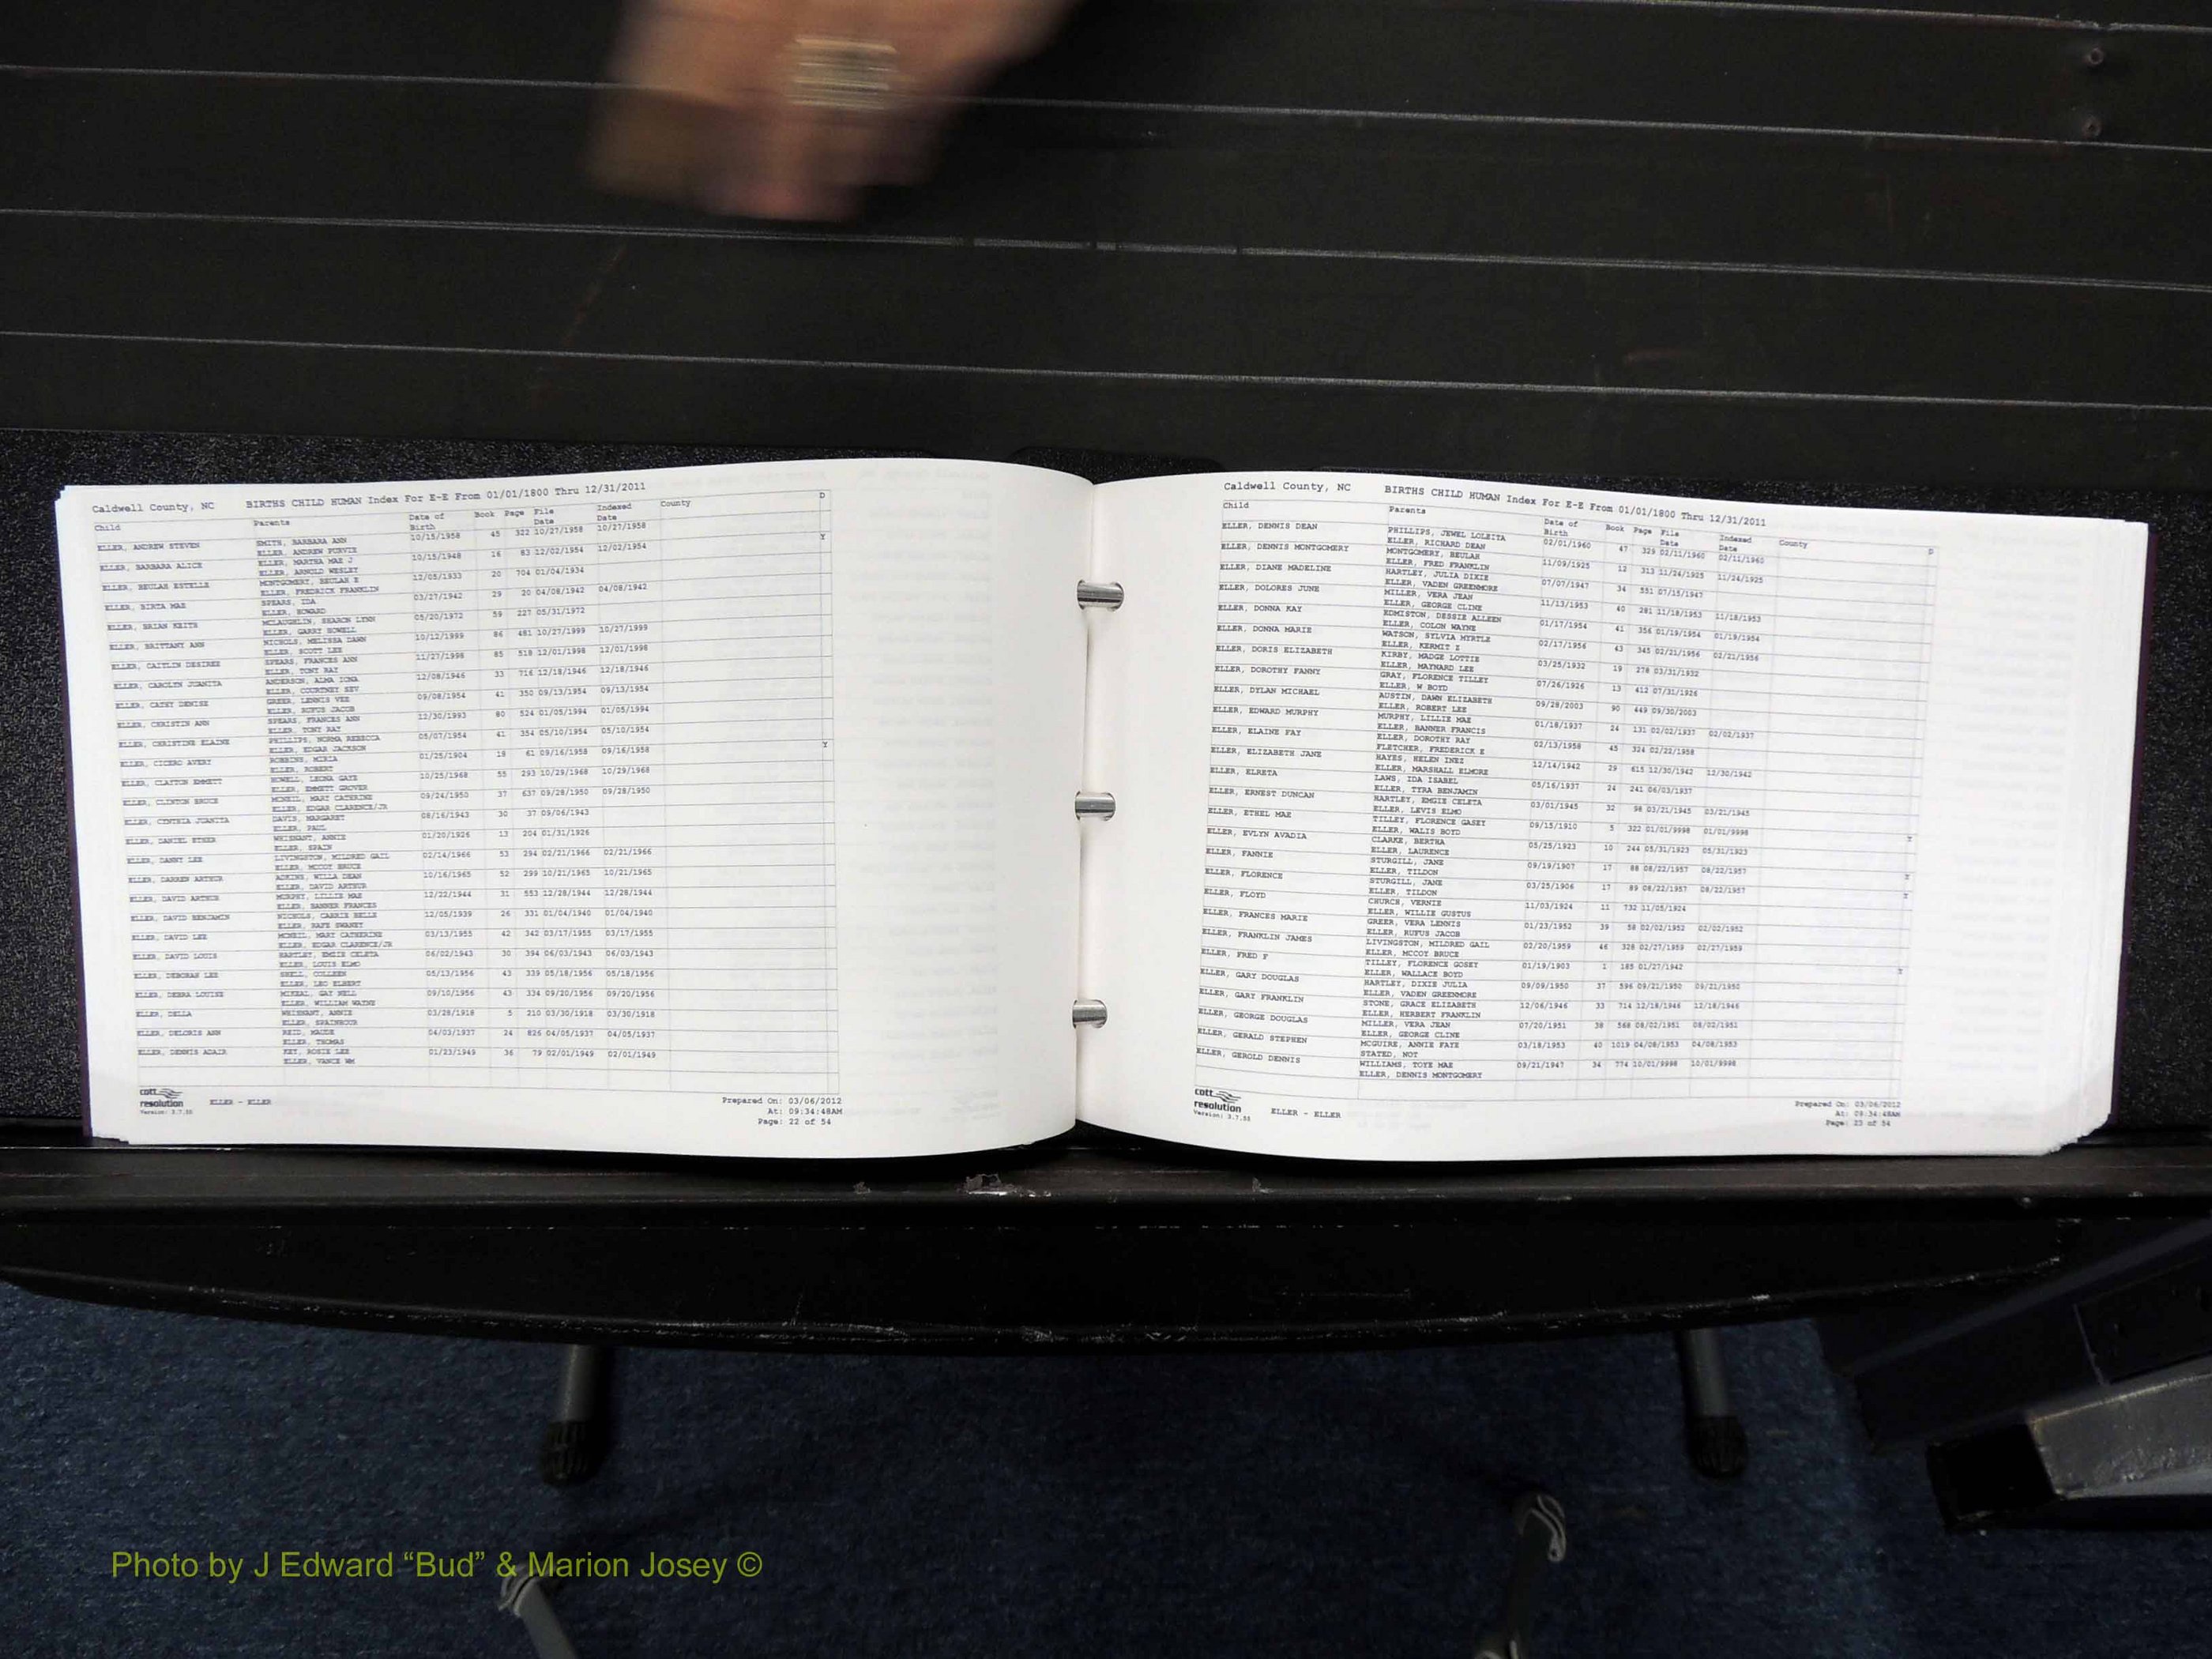 Caldwell County, NC BIRTHS CHILD HUMAN Index For E-E From 01/01/1800 Thru 12/31/2011
Child Parents Date of Birth Book Page File Date Indexed Date County D
ELLER, ANDREW STEVEN SMITH, BARBARA ANN 10/15/1958 45 322 10/27/1958 10/27/1958
ELLER, ANDREW PURVIE Y
ELLER, BARBARA ALICE ELLER, MARTHA MAE J 10/15/1948 16 83 12/02/1954 12/02/1954
ELLER, ARNOLD WESLEY
ELLER, BEULAH ESTELLE MONTGOMERY, BEULAH E 12/05/1933 20 704 01/04/1934
ELLER, FREDRICK FRANKLIN
ELLER, BIRTA MAE SPEARS, IDA 03/27/1942 29 20 04/08/1942 04/08/1942
ELLER, HOWARD
ELLER, BRIAN KEITH MCLAUGHLIN, SHARON LYNN 05/20/1972 59 227 05/31/1972
ELLER, GARRY HOWELL
ELLER, BRITTANY ANN NICHOLS, MELISSA DAWN 10/12/1999 86 481 10/27/1999 10/27/1999
ELLER, SCOTT LEE
ELLER, CAITLIN DESIREE SPEARS, FRANCES ANN 11/27/1998 85 518 12/01/1998 12/01/1998
ELLER, TONY RAY
ELLER, CAROLYN JUANITA ANDERSON, ALMA IONA 12/08/1946 33 716 12/18/1946 12/18/1946
ELLER, COURTNEY SEV
ELLER, CATHY DENISE GREER, LENNIS VEE 09/08/1954 41 350 09/13/1954 09/13/1954
ELLER, RUFUS JACOB
ELLER, CHRISTIN ANN SPEARS, FRANCES ANN 12/30/1993 80 524 01/05/1994 01/05/1994
ELLER, TONY RAY
ELLER, CHRISTINE ELAINE PHILLIPS, NORMA REBECCA 05/07/1954 41 354 05/10/1954 05/10/1954
ELLER, EDGAR JACKSON
ELLER, CICERO AVERY ROBBINS, MIRIA 01/25/1904 18 61 09/16/1958 09/16/1958 Y
ELLER, ROBERT
ELLER, CLAYTON EMMETT HOWELL, LEONA GAYE 10/25/1968 55 293 10/29/1968 10/29/1968
ELLER, EMMETT GROVER
ELLER, CLINTON BRUCE MCNEIL, MARY CATHERINE 09/24/1950 37 637 09/28/1950 09/28/1950
ELLER, EDGAR CLARENCE/JR
ELLER, CYNTHIA JUANITA DAVIS, MARGARET 08/16/1943 30 37 09/06/1943
ELLER, PAUL
ELLER, DANIEL ETHER WHISNANT, ANNIE 01/20/1926 13 204 01/31/1926
ELLER, SPAIN
ELLER, DANNY LEE LIVINGSTON, MILDRED GAIL 02/14/1966 53 294 02/21/1966 02/21/1966
ELLER, MCCOY BRUCE
ELLER, DARREN ARTHUR ADKINS, WILLA DEAN 10/16/1965 52 299 10/21/1965 10/21/1965
ELLER, DAVID ARTHUR
ELLER, DAVID ARTHUR MURPHY, LILLIE MAE 12/22/1944 31 553 12/28/1944 12/28/1944
ELLER, BANNER FRANCES
ELLER, DAVID BENJAMIN NICHOLS, CARRIE BELLE 12/05/1939 26 331 01/04/1940 01/04/1940
ELLER, RAFE SWANEY
ELLER, DAVID LEE MCNEIL, MARY CATHERINE 03/13/1955 42 342 03/17/1955 03/17/1955
ELLER, EDGAR CLARENCE/JR
ELLER, DAVID LOUIS HARTLEY, EMGIE CELETA 06/02/1943 30 394 06/03/1943 06/03/1943
ELLER, LOUIS ELMO
ELLER, DEBORAH LEE SHELL, COLLEEN 05/13/1956 43 339 05/18/1956 05/18/1956
ELLER, LEO ELBERT
ELLER, DEBRA LOUISE MIKEAL, GAY NELL 09/10/1956 43 334 09/20/1956 09/20/1956
ELLER, WILLIAM WAYNE
ELLER, DELLA WHISNANT, ANNIE 03/28/1918 5 210 03/30/1918 03/30/1918
ELLER, SPAINHOUR
ELLER, DELORIS ANN REID, MAUDE 04/03/1937 24 826 04/05/1937 04/05/1937
ELLER, THOMAS
ELLER, DENNIS ADAIR KEY, ROSIE LEE 01/23/1949 36 79 02/01/1949 02/01/1949
ELLER, VANCE WM
cott resolution
Version: 3.7.55
ELLER - ELLER
Prepared On: 03/06/2012
At: 09:34:48AM
Page: 22 of 54
Caldwell County, NC BIRTHS CHILD HUMAN Index For E-E From 01/01/1800 Thru 12/31/2011
Child Parents Date of Birth Book Page File Date Indexed Date County D
ELLER, DENNIS DEAN PHILLIPS, JEWEL LOLEITA 02/01/1960 47 329 02/11/1960 02/11/1960
ELLER, RICHARD DEAN
ELLER, DENNIS MONTGOMERY MONTGOMERY, BEULAH 11/09/1925 12 313 11/24/1925 11/24/1925
ELLER, FRED FRANKLIN
ELLER, DIANE MADELINE HARTLEY, JULIA DIXIE 07/07/1947 34 551 07/15/1947
ELLER, VADEN GREENMORE
ELLER, DOLORES JUNE MILLER, VERA JEAN 11/13/1953 40 281 11/18/1953 11/18/1953
ELLER, GEORGE CLINE
ELLER, DONNA KAY EDMISTON, DESSIE ALLEEN 01/17/1954 41 356 01/19/1954 01/19/1954
ELLER, COLON WAYNE
ELLER, DONNA MARIE WATSON, SYLVIA MYRTLE 02/17/1956 43 345 02/21/1956 02/21/1956
ELLER, KERMIT E
ELLER, DORIS ELIZABETH KIRBY, MADGE LOTTIE 03/25/1932 19 278 03/31/1932
ELLER, MAYNARD LEE
ELLER, DOROTHY FANNY GRAY, FLORENCE TILLEY 07/26/1926 13 412 07/31/1926
ELLER, W BOYD
ELLER, DYLAN MICHAEL AUSTIN, DAWN ELIZABETH 09/28/2003 90 449 09/30/2003
ELLER, ROBERT LEE
ELLER, EDWARD MURPHY MURPHY, LILLIE MAE 01/18/1937 24 131 02/02/1937 02/02/1937
ELLER, BANNER FRANCIS
ELLER, ELAINE FAY ELLER, DOROTHY RAY 02/13/1958 45 324 02/22/1958
FLETCHER, FREDERICK E
ELLER, ELIZABETH JANE HAYES, HELEN INEZ 12/14/1942 29 615 12/30/1942 12/30/1942
ELLER, MARSHALL ELMORE
ELLER, ELRETA LAWS, IDA ISABEL 05/16/1937 24 241 06/03/1937
ELLER, TYRA BENJAMIN
ELLER, ERNEST DUNCAN HARTLEY, EMGIE CELETA 03/01/1945 32 98 03/21/1945 03/21/1945
ELLER, LEVIS ELMO
ELLER, ETHEL MAE TILLEY, FLORENCE GASEY 09/15/1910 5 322 01/01/9998 01/01/9998 Y
ELLER, WALIS BOYD
ELLER, EVLYN AVADIA CLARKE, BERTHA 05/25/1923 10 244 05/31/1923 05/31/1923
ELLER, LAURENCE
ELLER, FANNIE STURGILL, JANE 09/19/1907 17 88 08/22/1957 08/22/1957 Y
ELLER, TILDON
ELLER, FLORENCE STURGILL, JANE 03/25/1906 17 89 08/22/1957 08/22/1957 Y
ELLER, TILDON
ELLER, FLOYD CHURCH, VERNIE 11/03/1924 11 732 11/05/1924
ELLER, WILLIE GUSTUS
ELLER, FRANCES MARIE GREER, VERA LENNIS 01/23/1952 39 58 02/02/1952 02/02/1952
ELLER, RUFUS JACOB
ELLER, FRANKLIN JAMES LIVINGSTON, MILDRED GAIL 02/20/1959 46 328 02/27/1959 02/27/1959
ELLER, MCCOY BRUCE
ELLER, FRED F TILLEY, FLORENCE GOSEY 01/19/1903 1 185 01/27/1942 Y
ELLER, WALLACE BOYD
ELLER, GARY DOUGLAS HARTLEY, DIXIE JULIA 09/09/1950 37 596 09/21/1950 09/21/1950
ELLER, VADEN GREENMORE
ELLER, GARY FRANKLIN STONE, GRACE ELIZABETH 12/06/1946 33 714 12/18/1946 12/18/1946
ELLER, HERBERT FRANKLIN
ELLER, GEORGE DOUGLAS MILLER, VERA JEAN 07/20/1951 38 568 08/02/1951 08/02/1951
ELLER, GEORGE CLINE
ELLER, GERALD STEPHEN MCGUIRE, ANNIE FAYE 03/18/1953 40 1019 04/08/1953 04/08/1953
STATED, NOT
ELLER, GEROLD DENNIS WILLIAMS, TOYE MAE 09/21/1947 34 774 10/01/9998 10/01/9998
ELLER, DENNIS MONTGOMERY
cott resolution
Version: 3.7.55
ELLER - ELLER
Prepared On: 03/06/2012
At: 09:34:48AM
Page: 23 of 54
Photo by J Edward “Bud” & Marion Josey ©